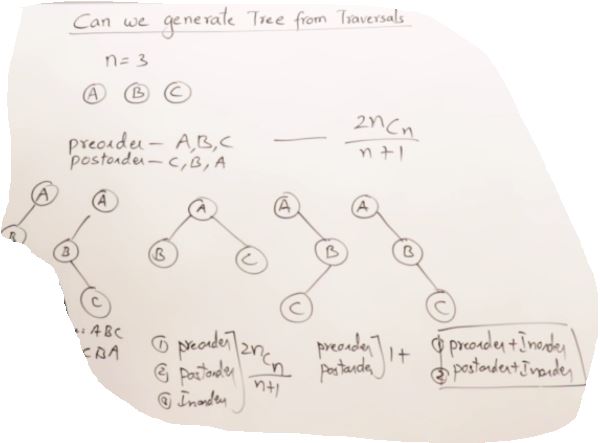 Can we generate Tree from Traversals
n = 3
A B C
preorder – A, B, C — 2nCn / n+1
postorder – C, B, A
A A A A A
B B B C B B
C C C
: ABC
CBA
① preorder ② postorder ③ Inorder ] 2nCn / n+1
preorder postorder ] 1+
① preorder + Inorder
② postorder + Inorder